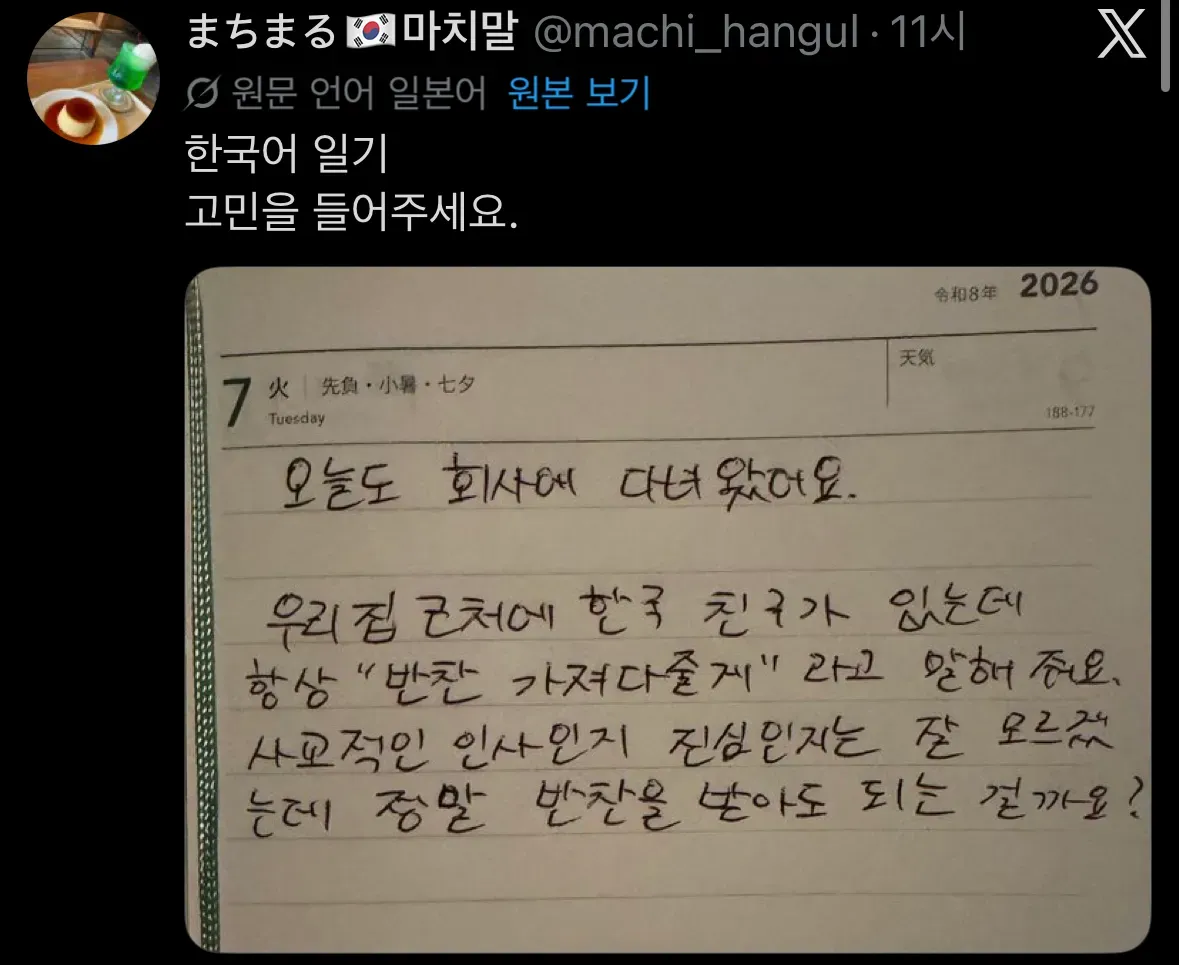 まちまる🇰🇷마치말 @machi_hangul · 11시
원문 언어 일본어 원본 보기
한국어 일기
고민을 들어주세요.
令和8年 2026
7 火 先負・小暑・七夕 天気
Tuesday 188-177
오늘도 회사에 다녀왔어요.
우리 집 근처에 한국 친구가 있는데
항상 "반찬 가져다줄게" 라고 말해 줘요.
사교적인 인사인지 진심인지는 잘 모르겠
는데 정말 반찬을 받아도 되는 걸까요?